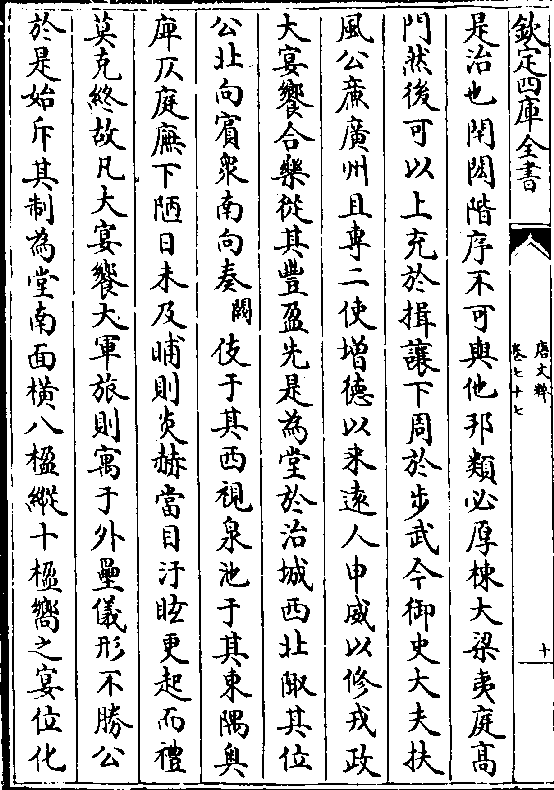 欽定四庫全書
唐文粹
卷七十七
十
是治也閈閎階序不可與他邦類必厚棟大梁夷庭高
門然後可以上充於揖讓下周於步武今御史大夫扶
風公廉廣州且專二使增德以来逺人申威以修戎政
大宴饗合樂從其豐盈先是為堂於治城西北陬其位
公北向賓衆南向奏闕伎于其西視泉池于其東隅奥
庳仄庭廡下陋日未及晡則炎赫當目汙眩更起而禮
莫克終故凡大宴饗大軍旅則寓于外壘儀形不勝公
於是始斥其制為堂南面橫八楹縱十楹嚮之宴位化